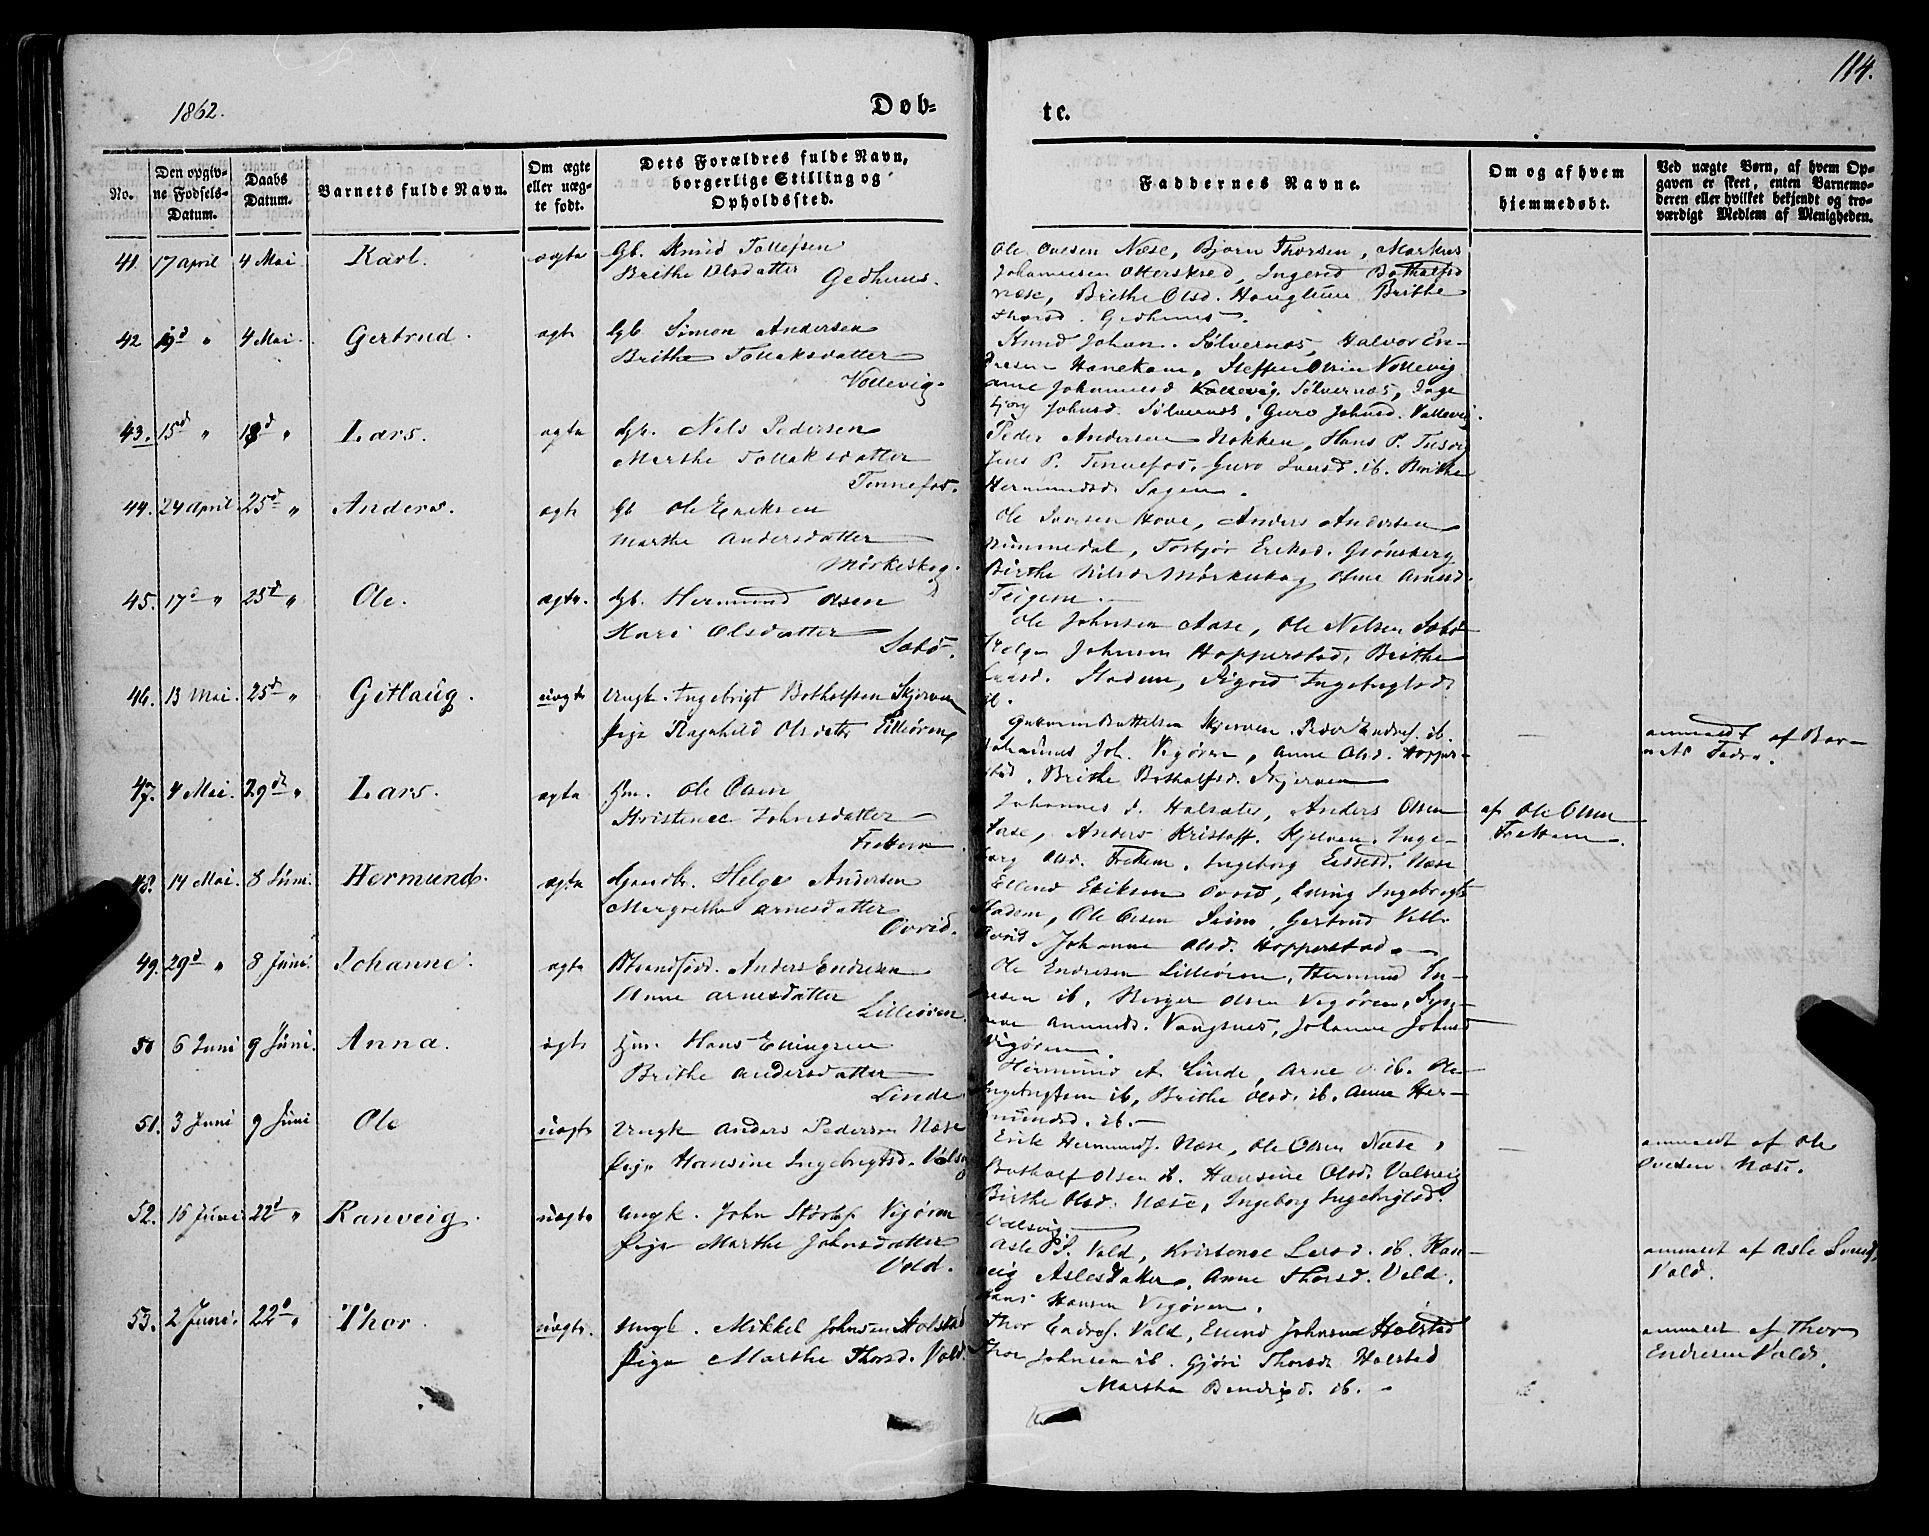 114.
1862.
Døb-
te.
No.
Den opgiv-
ne Fødsels-
Datum.
Daabs
Datum.
Barnets fulde Navn.
Om ægte
eller uæg-
te født.
Dets Forældres fulde Navn,
borgerlige Stilling og
Opholdssted.
Faddernes Navne.
Om og af hvem
hjemmedøbt.
Ved uægte Børn, af hvem Op-
gaven er skeet, enten Barnemo-
deren eller hvilket bekjendt og tro-
værdigt Medlem af Menigheden.
41. 17 april 4 Mai Karl. ægte
Gb. Knud Tollefsen
Brithe Olsdatter
Gedhuus.
Ole Olesen Næse, Bjørn Thorsen, Markus
Johannesen Otterskred, Ingerid Bothalfsd
Næse, Brithe Olsd. Houglum Brithe
Thorsd. Gedhuus.
42 19d " 4 Mai. Gertrud. ægte
Gb. Simon Andersen
Brithe Tollaksdatter
Vollevig.
Knud Johan. Sølvernæs, Halvor En-
dresen Hanekam, Steffen Olsen Vollevig
anne Johannesd Sølvernæs, Inge
bjorg Johnsd. Sølvernæs, Guro Johnsd. Vollevig.
43. 15d " 18d " Lars. ægte
Gb. Nels Pedersen
Marthe Tollaksdatter
Tennefos.
Peder Andersen Nokken, Hans P.
Jens P. Tennefos, Guro Iversd. ib. Brithe
Hermundsd. Sagen.
44. 24 April 25d " Anders. ægte
Gb Ole Eriksen
Marthe Andersdatter
Mørkeskog.
Ole Iversen Hove, Anders Andersen
Nummedal, Torbjør Eriksd. Grønsberg
Birthe Nilsd Mørkeskog,
Teigen.
45. 17d " 25d " Ole. ægte.
Gb. Hermund Olsen
Kari Olsdatter
Sæbø.
Ole Johnsen Aase, Ole Nelsen Sæbø
Helge Johnsen Hopperstad, Brithe
Larsd. Stadem, Sigrid Ingebrigtsd.
ib.
46. 13 Mai. 25d " Gitlaug. uægte
Ungk. Ingebrigt Bothalfsen Skjerven
Pige Ragnhild Olsdatter Lilleøren
Skjerven. Peder Endres. ib.
Johannes Joh. Vigøren, Anne Olsd. Hopper-
stad, Brithe Bothalfsd. Skjerven
anmeldt af Bar-
nets Fader.
47. 4 Mai. 29d " Lars. ægte
Hm. Ole Olsen
Kristence Johnsdatter
Fretem.
Johannes J. Halsæter, Anders Olsen
Aase, Anders Kristoff. Skjerven. Inge-
borg Olsd. Fretem. Ingeborg Næse
af Ole Olsen
Frettem.
48. 14 Mai. 8 Juni. Hermund. ægte
Gaardbr. Helge Andersen
Margrethe Arnesdatter
Ovrid.
Ellend Eriksen Ovrid, Ingebrigts
Stadem, Ole Olsen Seim, Gertrud
Ovrid, Johanne Olsd. Hopperstad.
49. 29d " 8 Juni. Johanne. ægte
Strandsidd. Anders Endresen
Anne Arnesdatter
Lilleøren.
Ole Endresen Lilleøren, Hermund En-
dresen ib, Berger Olsen Vigøren, Syn-
neve Amundsd. Vangsnes, Johanne Johnsd
Vigøren.
50 6 Juni 9 Juni. Anna. ægte
Hm. Hans Ellingsen
Brithe Andersdatter
Linde
Hermund A. Linde, Arne ib. Ole
Ingebrigtsen ib, Brithe Olsd. ib. Anne Her-
mundsd. ib.
51. 3 Juni 9 Juni Ole uægte
Ungk Anders Pedersen Næse
Pige Hansine Ingebrigtsd. Valsvig
Erik Hermunds. Næse, Ole Olsen Næse,
Bothalf Olsen ib. Hansine Olsd. Valsvig
Birthe Olsd. Næse, Ingeborg Ingebrigtsd.
Valsvig
anmeldt af Ole
Næse.
52. 16 Juni 22d " Ranveig. uægte
Ungk. John Vigøren
Pige Marthe Johnsdatter
Vold.
Asle S. Vold, Kristence Larsd. ib. Ran-
veig Aslesdatter, Anne Thorsd. Vold.
Hans Hansen Vigøren.
anmeldt af Asle
Vold.
53. 2 Juni. 22d " Thor. uægte.
Ungk. Mikkel Johnsen Holstad
Pige Marthe Thorsd. Vold.
Thor Endres. Vold, Elend Johnsen Holstad
Thor Johnsen ib. Gjøri Thorsd. Holstad
Martha Bendixd. ib.
anmeldt af Thor
Endresen Vold.